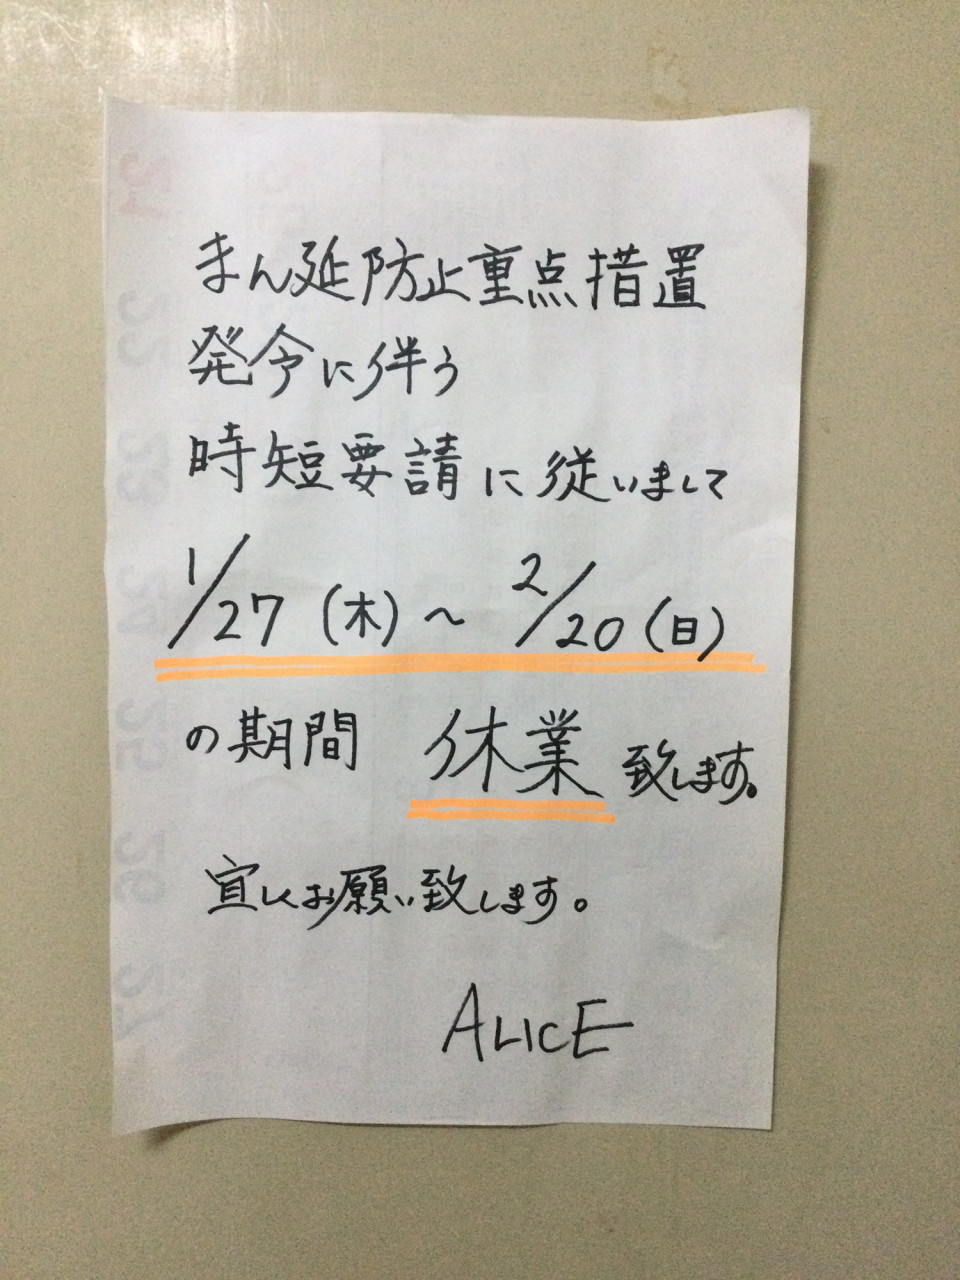 まん延防止重点措置
発令に伴う
時短要請に従いまして
1/27(木)~2/20(日)
の期間 休業致します。
宜しくお願い致します。
ALICE
21
22
23
24
25
26
27